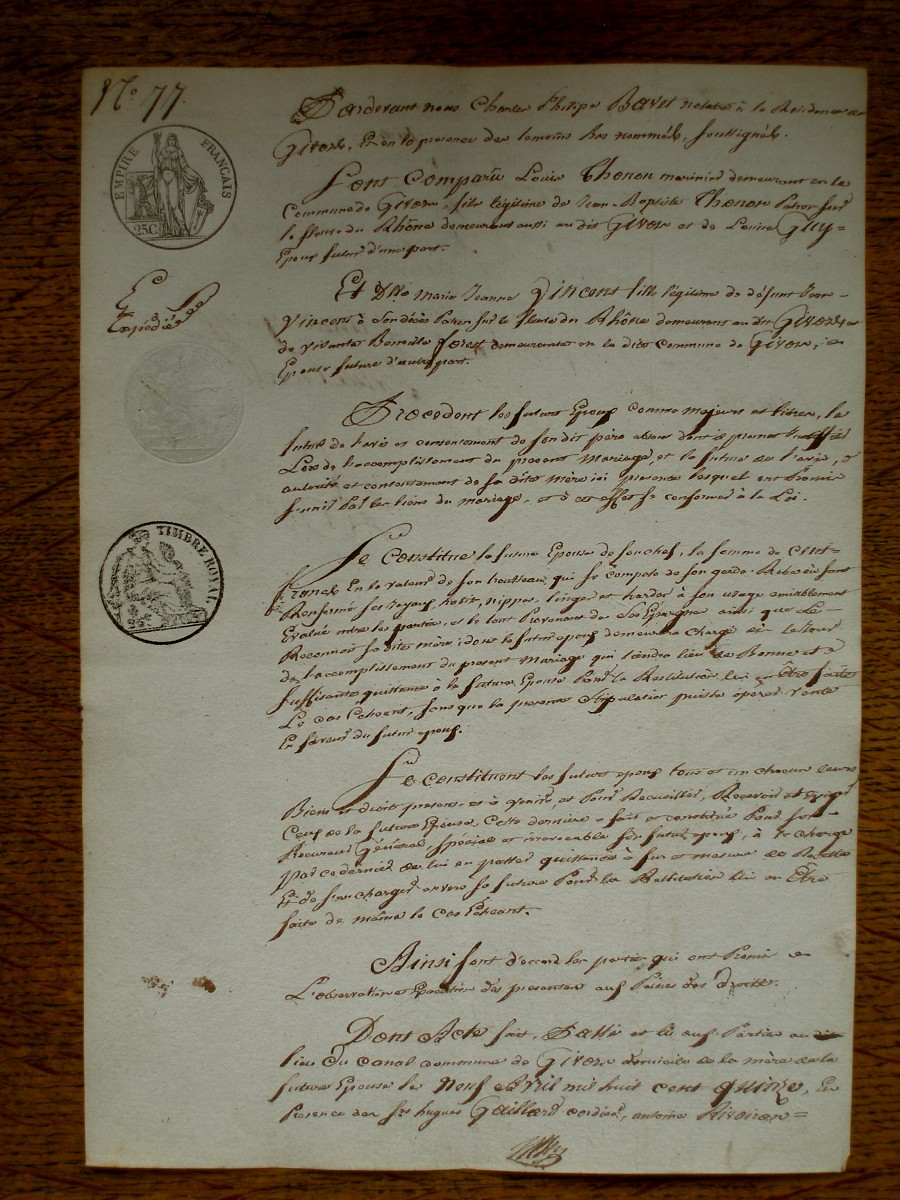 N° 77.
EMPIRE FRANÇAIS
25C.
Expédié
TIMBRE ROYAL
Pardevant nous Charles Philipe Bavet notaire à la Résidence de
Givors, Et en la presence des temoins bas nommés, soussignés.
Sont Comparu Louis Thenon marinier demeurant en la
Commune de Givors, fils légitime de Jean-Baptiste Thenon Patron sur
le fleuve du Rhône demeurant aussi au dit Givors et de Louise Guy=
Epoux futur d'une part.
Et Dlle Marie Jeanne Vincent fille légitime de défunt Jean-
Vincent à Son décès Patron sur le fleuve du Rhône demeurant au dit Givors &
de vivante Benoite forest demeurante en la dite Commune de Givors,
Epouse future d'autre part.
Procedent les futurs Epoux comme majeurs et libres, le
futur de l'avis et consentement de son dit père absent dont il promet
Lors de l'accomplissement du present Mariage, et la future de l'avis,
autorité et consentement de sa dite mère ici presente lesquels ont Promis
s'unir Par les liens du mariage, et à cet effet se conformer à la Loi.
Se Constitue la future Epouse de son chef, la somme de Cent
francs En la valeur de son trousseau, qui se compose de son garde-Robe en
Renfermé ses joyaux, habits, nippes, linges et hardes à son usage amiablement
Evalué entre les parties, et le tout Provenant de Ses Epargnes ainsi que Le
Reconnoit sa dite mère; dont le futur epoux demeurera Chargé
de l'accomplissement du present Mariage qui tiendra lieu de Bonne et
suffisante quittance à la future Epouse Pour la Restitution lui en être faite
Le cas Echeant, sans que la presente Stipulation puisse opérer vente
En faveur du futur epoux.
Se Constituent les futurs epoux tous et un chacun leurs
Biens et droits presens et à venir, et Pour Recueillir, Recevoir et exiger
Ceux de la future Epouse, Cette dernière a fait et constitué Pour son
Procureur Général, spécial et irrevocable son futur epoux, à la charge
par ce dernier de lui en passer quittance à fur et mesure de Recette
Et de s'en charger envers sa future Pour la Restitution lui en Etre
faite de même le cas Echeant.
Ainsi sont d'accord les parties qui ont Promis
L'observation et Execution des presentes aux Peines des droits.
Dont Acte fait, Passé et lû aux Parties au dit
lieu du Canal commune de Givors domicile de la mère de la
future Epouse le Neuf Avril mil huit cent quinze, En
Presence des Srs hugues Gaillard cordier, antoine Rivoiron=